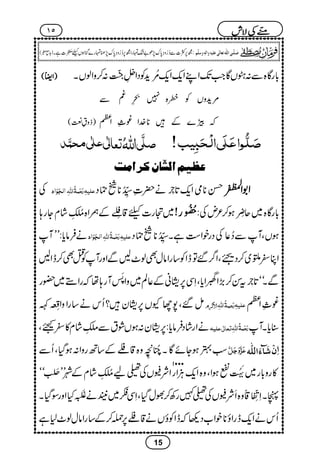 منّے کی لاش
١٥
فرمانِ مصطفٰے صلی اللہ تعالیٰ علیہ واٰلہ وسلم
بارگاہ سے نہ ہٹوں گا جب تک اپنے ایک ایک مُرید کو داخلِ جنّت نہ کروا لوں۔ (ایضاً)
مریدوں کو خطرہ نہیں بحرِ غم سے
کہ بیڑے کے ہیں ناخدا غوثِ اعظم (ذوقِ نعت)
صَلُّوا عَلَی الْحَبِیب! صلَّی اللہُ تعالٰی علٰی محمَّد
عظیم الشان کرامت
ابوالمظفر حسن نامی ایک تاجر نے حضرتِ سیِّدُنا شیخ حماد علیہ رحمۃ اللہ الجواد کی
بارگاہ میں حاضر ہو کر عرض کی: حُضُور! میں تجارت کیلئے قافلے کے ہمراہ ملکِ شام جا رہا
ہوں، آپ سے دعا کی درخواست ہے۔ سیِّدُنا شیخ حماد علیہ رحمۃ اللہ الجواد نے فرمایا: ”آپ
اپنا سفر ملتوی کر دیجئے، اگر گئے تو ڈاکو سارا مال بھی لوٹ لیں گے اور آپ کو قتل بھی کر ڈالیں
گے۔“ تاجر یہ سن کر بڑا گھبرایا، اسی پریشانی کے عالم میں واپس آرہا تھا کہ راستے میں حضور
غوثِ اعظم علیہ رحمۃ اللہ الاکرم مل گئے، پوچھا، کیوں پریشان ہیں؟ اُس نے سارا واقعہ کہہ
سنایا۔ آپ رحمۃ اللہ تعالیٰ علیہ نے ارشاد فرمایا: پریشان نہ ہوں شوق سے ملکِ شام کا سفر کیجئے،
اِن شآءَ اللہ عَزَّوَجَلَّ سب بہتر ہو جائے گا۔ چنانچہ وہ قافلے کے ساتھ روانہ ہو گیا، اُسے
کاروبار میں بَہُت نفع ہوا، وہ ایک ہزار اشرفیوں کی تھیلی لیے ملکِ شام کے شہر ”حلب“
پہنچا۔ اِتِّفاقاً وہ اشرفیوں کی تھیلی کہیں رکھ کر بھول گیا، اسی فکر میں نیند نے غلبہ کیا اور سو گیا۔
اُس نے ایک ڈراؤنا خواب دیکھا کہ ڈاکوؤں نے قافلے پر حملہ کر کے سارا مال لوٹ لیا ہے
15